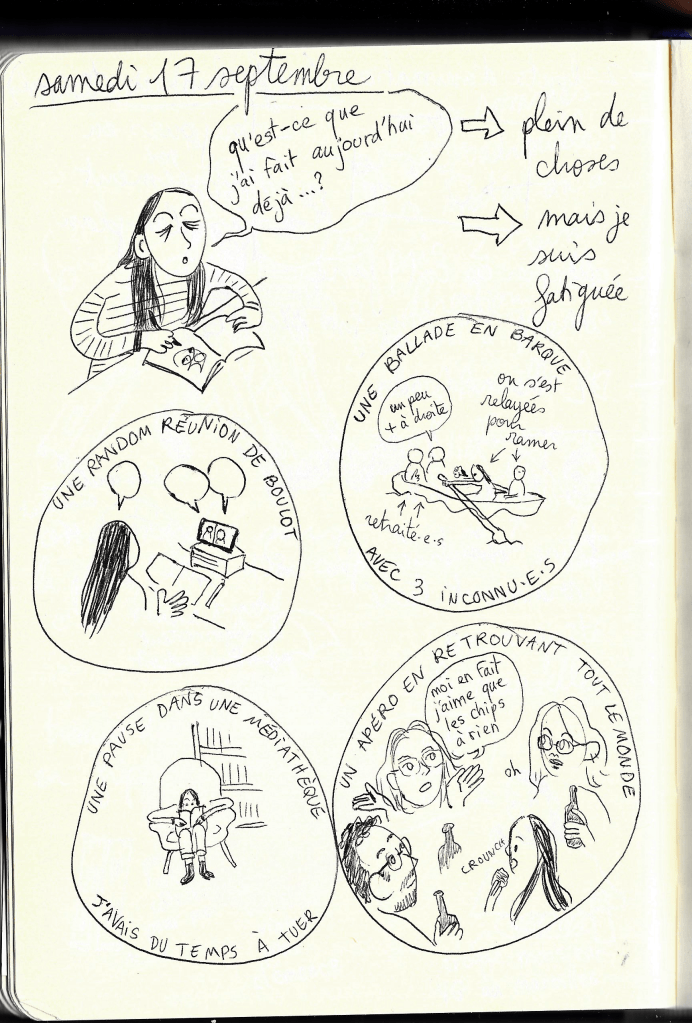 samedi 17 septembre
qu'est-ce que
j'ai fait aujourd'hui
déjà...?
plein de
choses
mais je
suis
fatiguée
UNE BALLADE EN BARQUE
un peu
+ à droite
on s'est
relayées
pour
ramer
retraité.e.s
AVEC 3 INCONNU.E.S
UNE RANDOM RÉUNION DE BOULOT
UN APÉRO EN RETROUVANT TOUT LE MONDE
moi en fait
j'aime que
les chips
à rien
oh
CROUNCH
UNE PAUSE DANS UNE MÉDIATHÈQUE
J'AVAIS DU TEMPS À TUER